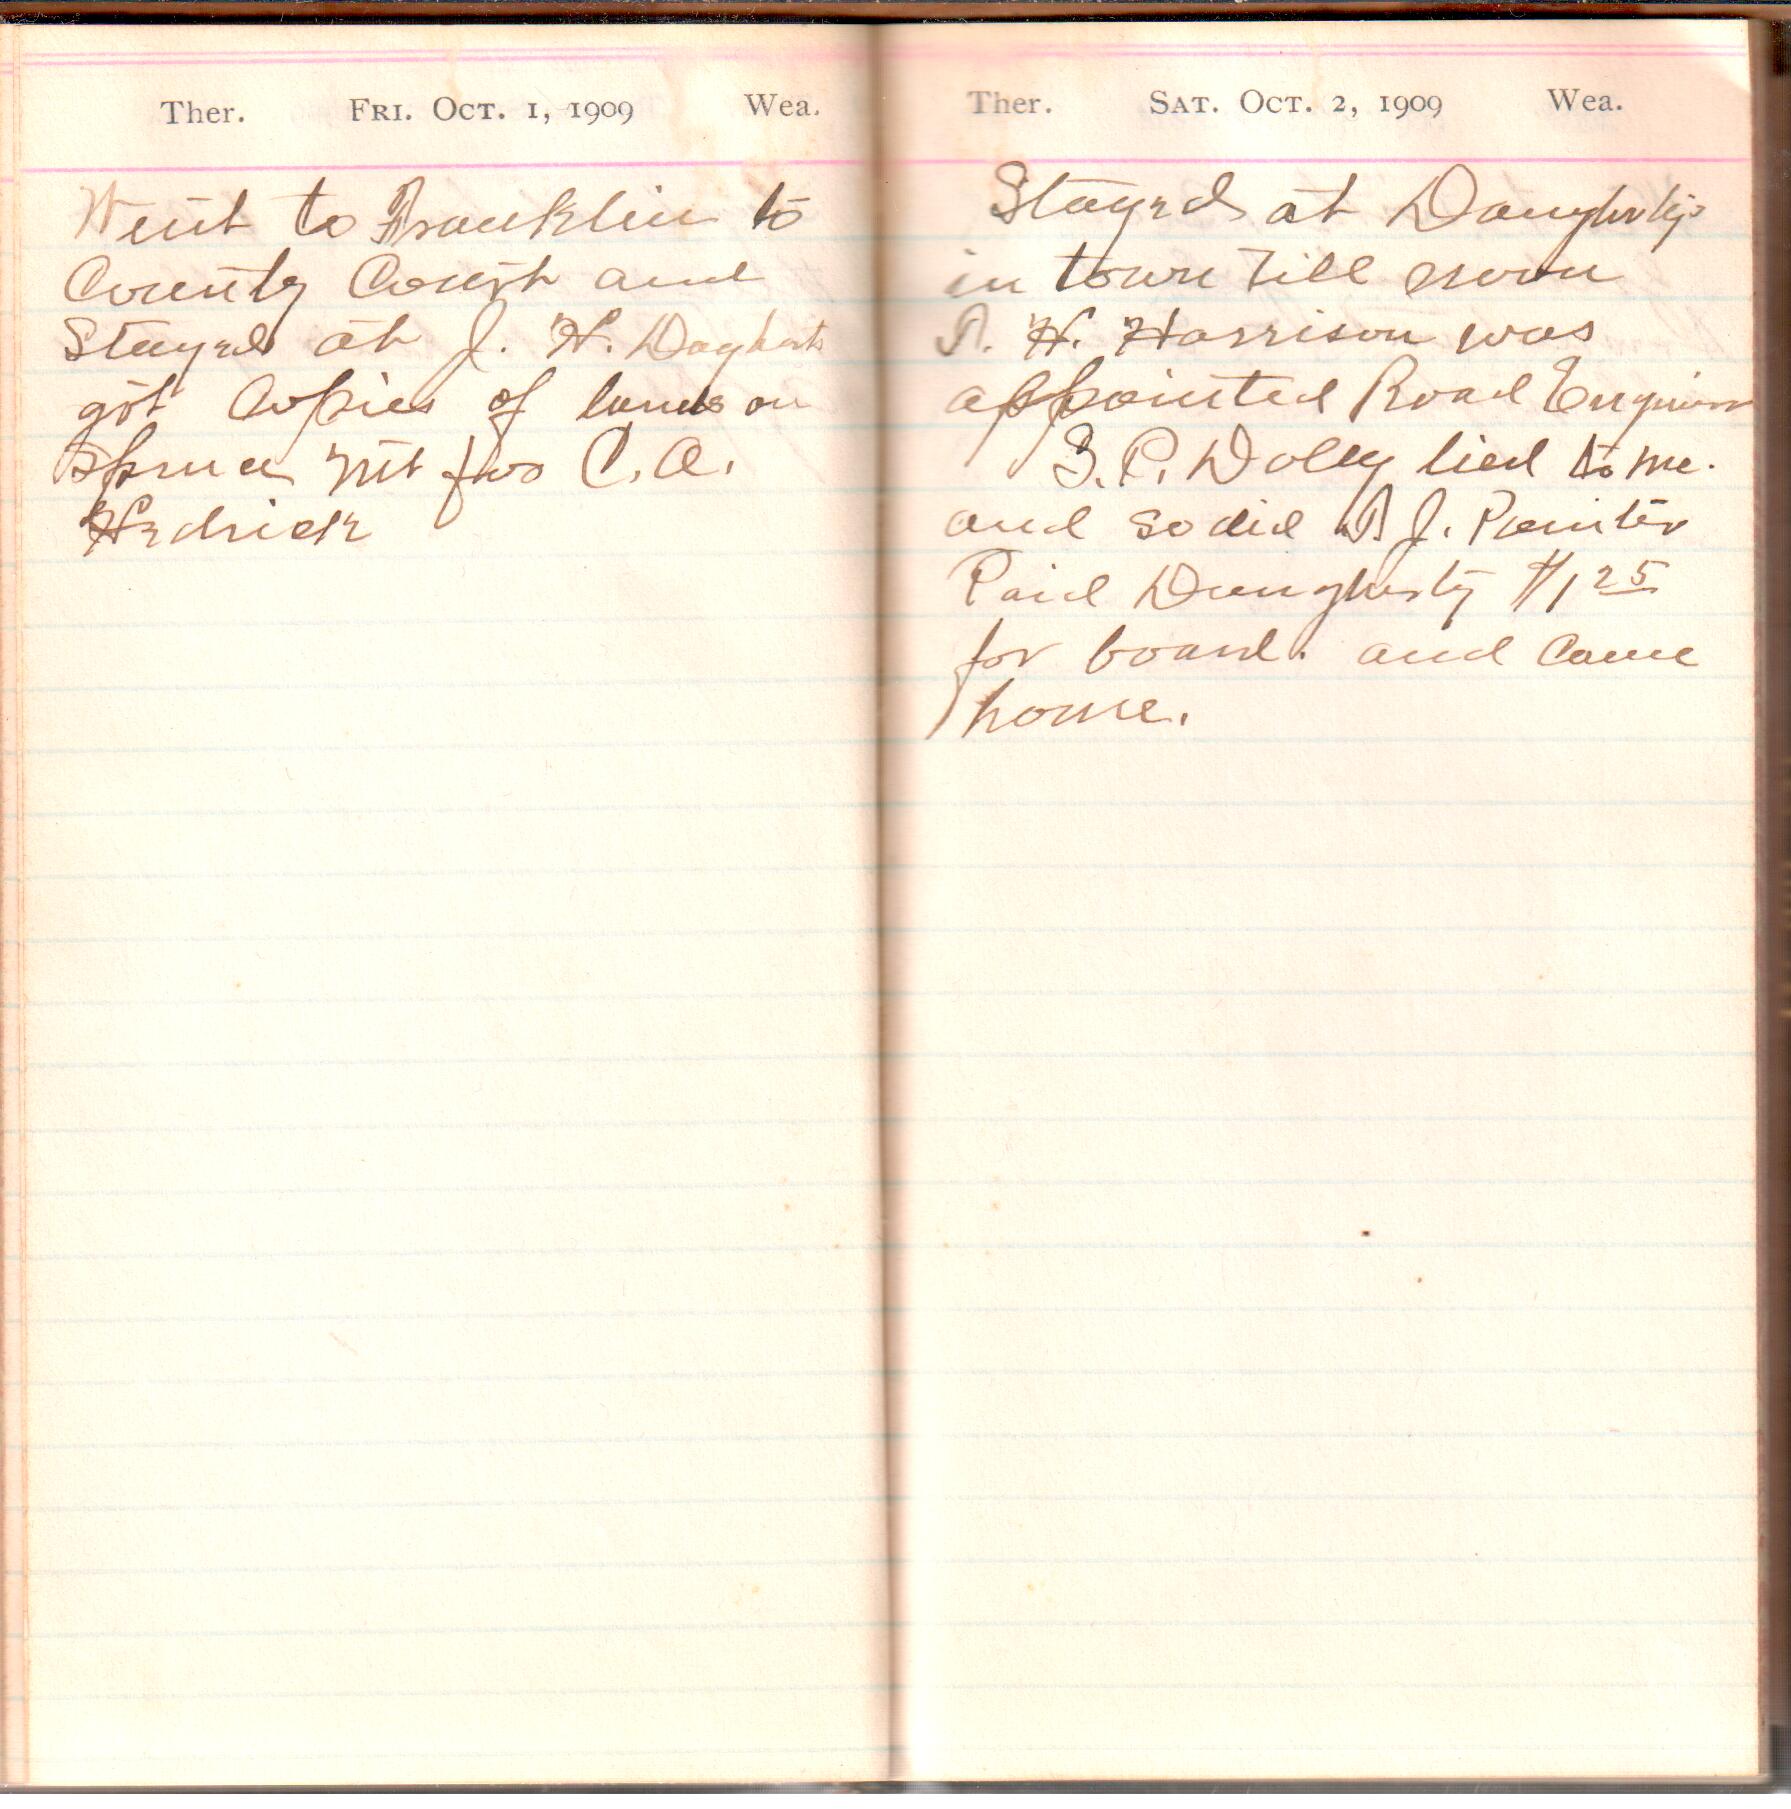 Ther. Fri. Oct. 1, 1909 Wea.
Went to Franklin to
County Court and
Stayed at J. H.
got Copies of lands on
Spruce Mt for C. A.
Hedrick
Ther. Sat. Oct. 2, 1909 Wea.
Stayed at Daugherty's
in town till noon
H. Harrison was
appointed Road Engineer
P. Dolly lied to me.
and so did J. Painter
Paid Daugherty $1.25
for board. and Came
home.